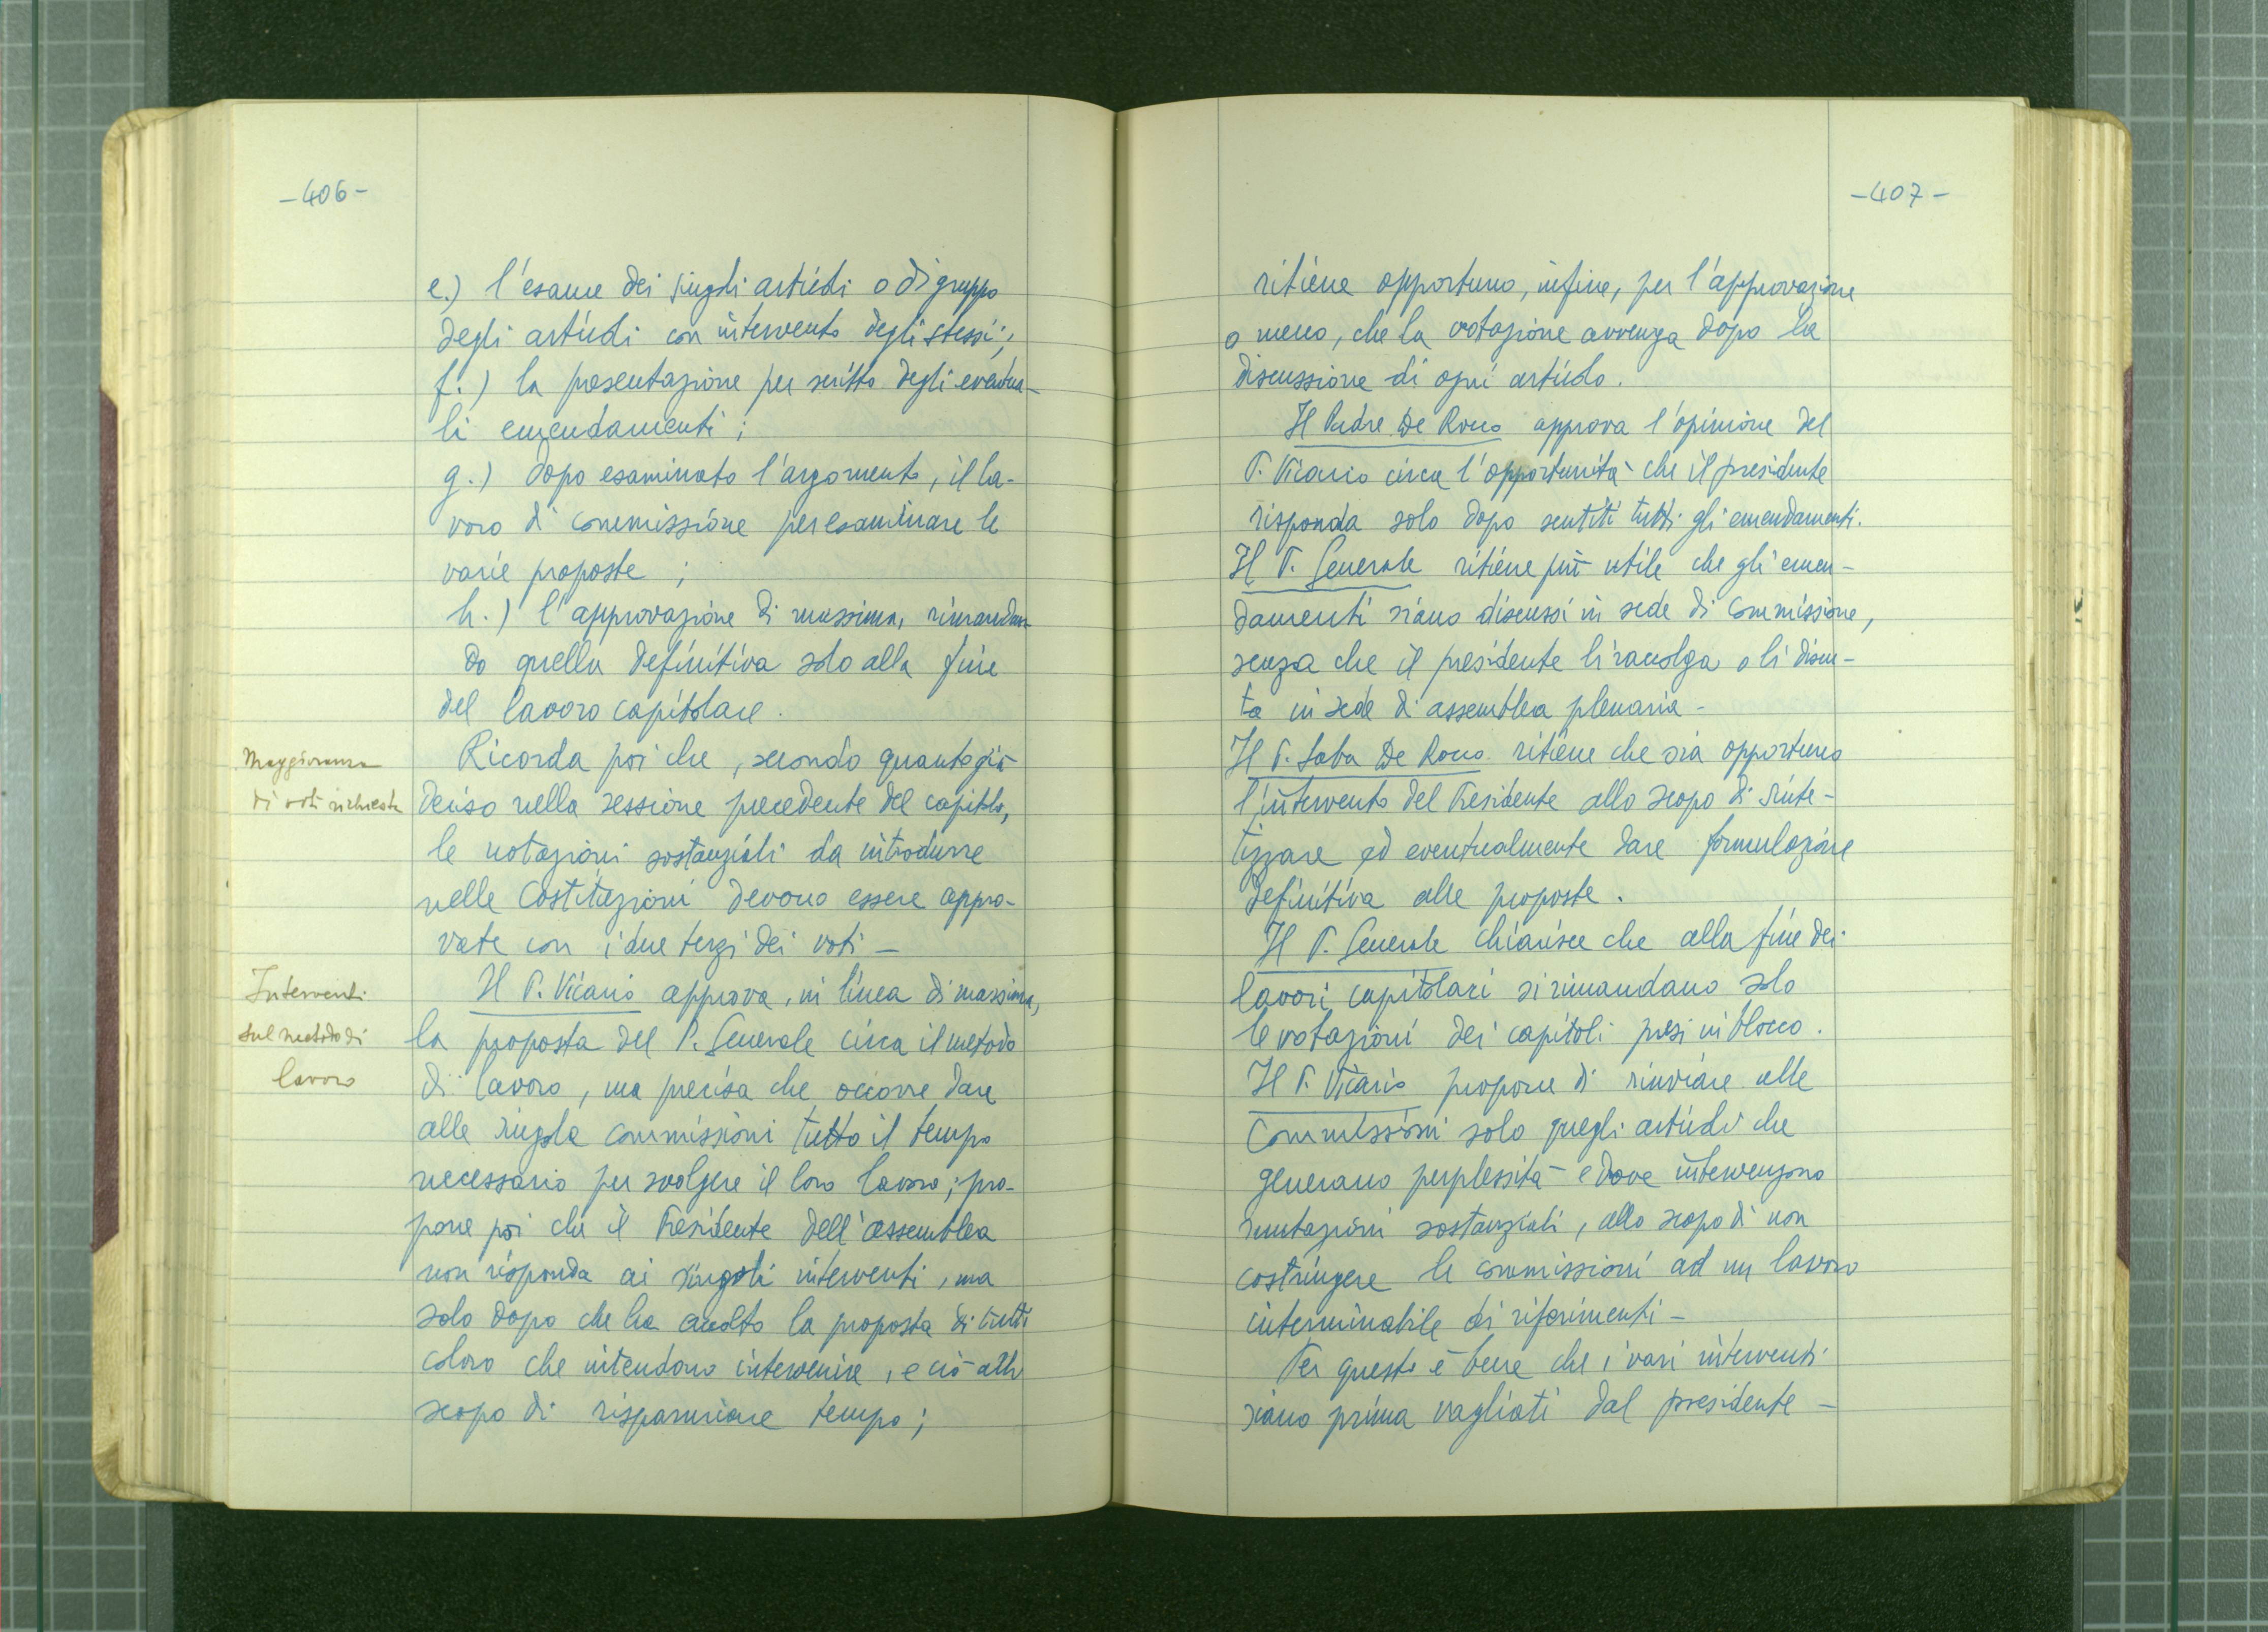 -406-
e.) l'esame dei singoli articoli o di gruppo
degli articoli con intervento degli stessi;
f.) la presentazione per scritto degli eventua-
li emendamenti;
g.) dopo esaminato l'argomento, il la-
voro di commissione per esaminare le
varie proposte;
h.) l'approvazione di massima, rimandan-
do quella definitiva solo alla fine
del lavoro capitolare.
Maggioranza
di voti richiesta
Ricorda poi che, secondo quanto già
deciso nella sessione precedente del capitolo,
le votazioni sostanziali da introdurre
nelle Costituzioni devono essere appro-
vate con i due terzi dei voti -
Interventi
sul metodo di
lavoro
Il P. Vicario approva, in linea di massima,
la proposta del P. Generale circa il metodo
di lavoro, ma precisa che occorre dare
alle singole commissioni tutto il tempo
necessario per svolgere il loro lavoro; pro-
pone poi che il Presidente dell'assemblea
non risponda ai singoli interventi, ma
solo dopo che ha accolto la proposta di tutti
coloro che intendono intervenire, e ciò allo
scopo di risparmiare tempo;
-407-
ritiene opportuno, infine, per l'approvazione
o meno, che la votazione avvenga dopo la
discussione di ogni articolo.
Il Padre De Rocco approva l'opinione del
P. Vicario circa l'opportunità che il presidente
risponda solo dopo sentiti tutti gli emendamenti.
Il P. Generale ritiene più utile che gli emen-
damenti siano discussi in sede di Commissione,
senza che il presidente li raccolga o li discu-
ta in sede di assemblea plenaria -
Il P. Saba De Rocco ritiene che sia opportuno
l'intervento del Presidente allo scopo di sinte-
tizzare ed eventualmente dare formulazione
definitiva alle proposte.
Il P. Generale chiarisce che alla fine dei
lavori capitolari si rimandano solo
le votazioni dei capitoli presi in blocco.
Il P. Vicario propone di rinviare alle
Commissioni solo quegli articoli che
generano perplessità e dove intervengono
mutazioni sostanziali, allo scopo di non
costringere le commissioni ad un lavoro
interminabile di riferimenti -
Per questo è bene che i vari interventi
siano prima vagliati dal presidente -